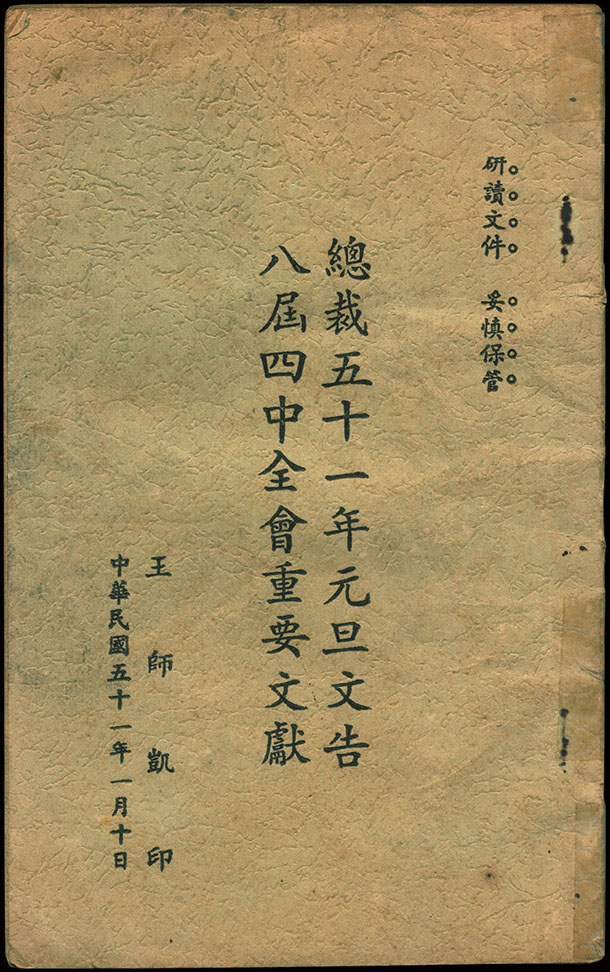 研讀文件　妥慎保管
總裁五十一年元旦文告
八屆四中全會重要文獻
王師凱印
中華民國五十一年一月十日